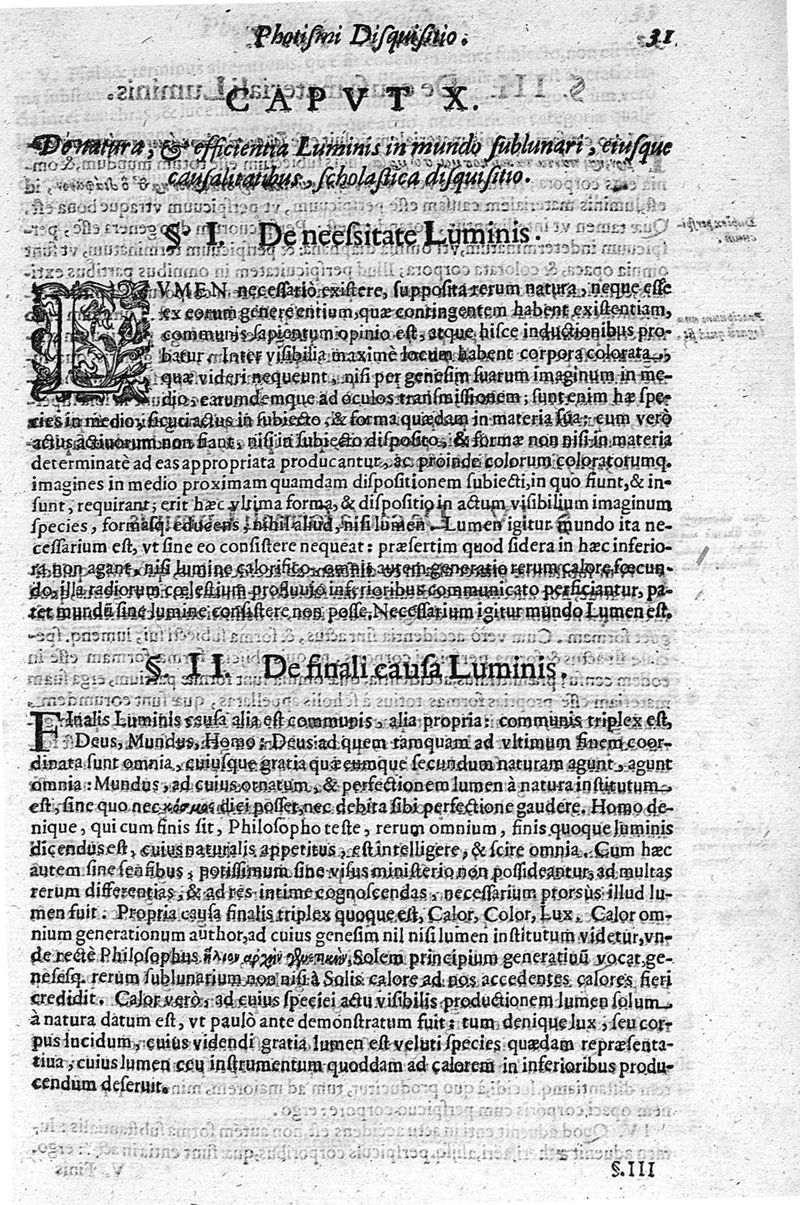 Photiſmi Diſquiſitio. 31
CAPVT X.
De natura, & efficientia Luminis in mundo ſublunari, eiuſque
cauſalitatibus, ſcholaſtica diſquiſitio.
§ I. De neeſsitate Luminis.
LVMEN neceſſariò exiſtere, ſuppoſita rerum natura, neque eſſe
ex eorum genere entium, quæ contingentem habent exiſtentiam,
communis ſapientum opinio eſt, atque hiſce inductionibus pro-
batur. Inter viſibilia maximè locum habent corpora colorata,
quæ videri nequeunt, niſi per geneſim ſuarum imaginum in me-
dio, earumdemque ad oculos transmiſſionem; ſunt enim hæ ſpe-
cies in medio, ſicut actus in ſubiecto, & forma quædam in materia ſua; cum verò
actus actiuorum non fiant, niſi in ſubiecto diſpoſito, & formæ non niſi in materia
determinatè ad eas appropriata producantur, ac proinde colorum coloratorumq.
imagines in medio proximam quamdam diſpoſitionem ſubiecti, in quo fiunt, & in-
ſunt, requirant; erit hæc vltima forma, & diſpoſitio in actum viſibilium imaginum
ſpecies, formaſq; educens, nihil aliud, niſi lumen. Lumen igitur mundo ita ne-
ceſſarium eſt, vt ſine eo conſiſtere nequeat: præſertim quod ſidera in hæc inferio-
ra non agant, niſi lumine calorifico, omnis autem generatio rerum calore fœcun-
do, illa radiorum cœleſtium profluuio inferioribus communicato perficiantur, pa-
tet mundũ ſine lumine conſiſtere non poſſe. Neceſſarium igitur mundo Lumen eſt,
§ II. De finali cauſa Luminis,
FInalis Luminis cauſa alia eſt communis, alia propria: communis triplex eſt,
Deus, Mundus, Homo: Deus ad quem tamquam ad vltimum finem coor-
dinata ſunt omnia, cuiuſque gratia quæcumque ſecundum naturam agunt, agunt
omnia: Mundus, ad cuius ornatum, & perfectionem lumen à natura inſtitutum
eſt, ſine quo nec κόσμος dici poſſet, nec debita ſibi perfectione gaudere. Homo de-
nique, qui cum finis ſit, Philoſopho teſte, rerum omnium, finis quoque luminis
dicendus eſt, cuius naturalis appetitus, eſt intelligere, & ſcire omnia. Cum hæc
autem ſine ſenſibus, potiſſimum ſine viſus miniſterio non poſſideantur, ad multas
rerum differentias, & ad res intime cognoſcendas, neceſſarium prorsùs illud lu-
men fuit. Propria cauſa finalis triplex quoque eſt, Calor, Color, Lux. Calor om-
nium generationum author, ad cuius geneſim nil niſi lumen inſtitutum videtur, vn-
de rectè Philoſophus ἥλιον ἀρχὴν Solem principium generationũ vocat, ge-
neſeſq. rerum ſublunarium non niſi à Solis calore ad nos accedentes calores fieri
credidit. Calor verò, ad cuius ſpeciei actu viſibilis productionem lumen ſolum
à natura datum eſt, vt paulò ante demonſtratum fuit: tum denique lux, ſeu cor-
pus lucidum, cuius videndi gratia lumen eſt veluti ſpecies quædam repræſenta-
tiua, cuius lumen ceu inſtrumentum quoddam ad calorem in inferioribus produ-
cendum deſeruit.
§. III